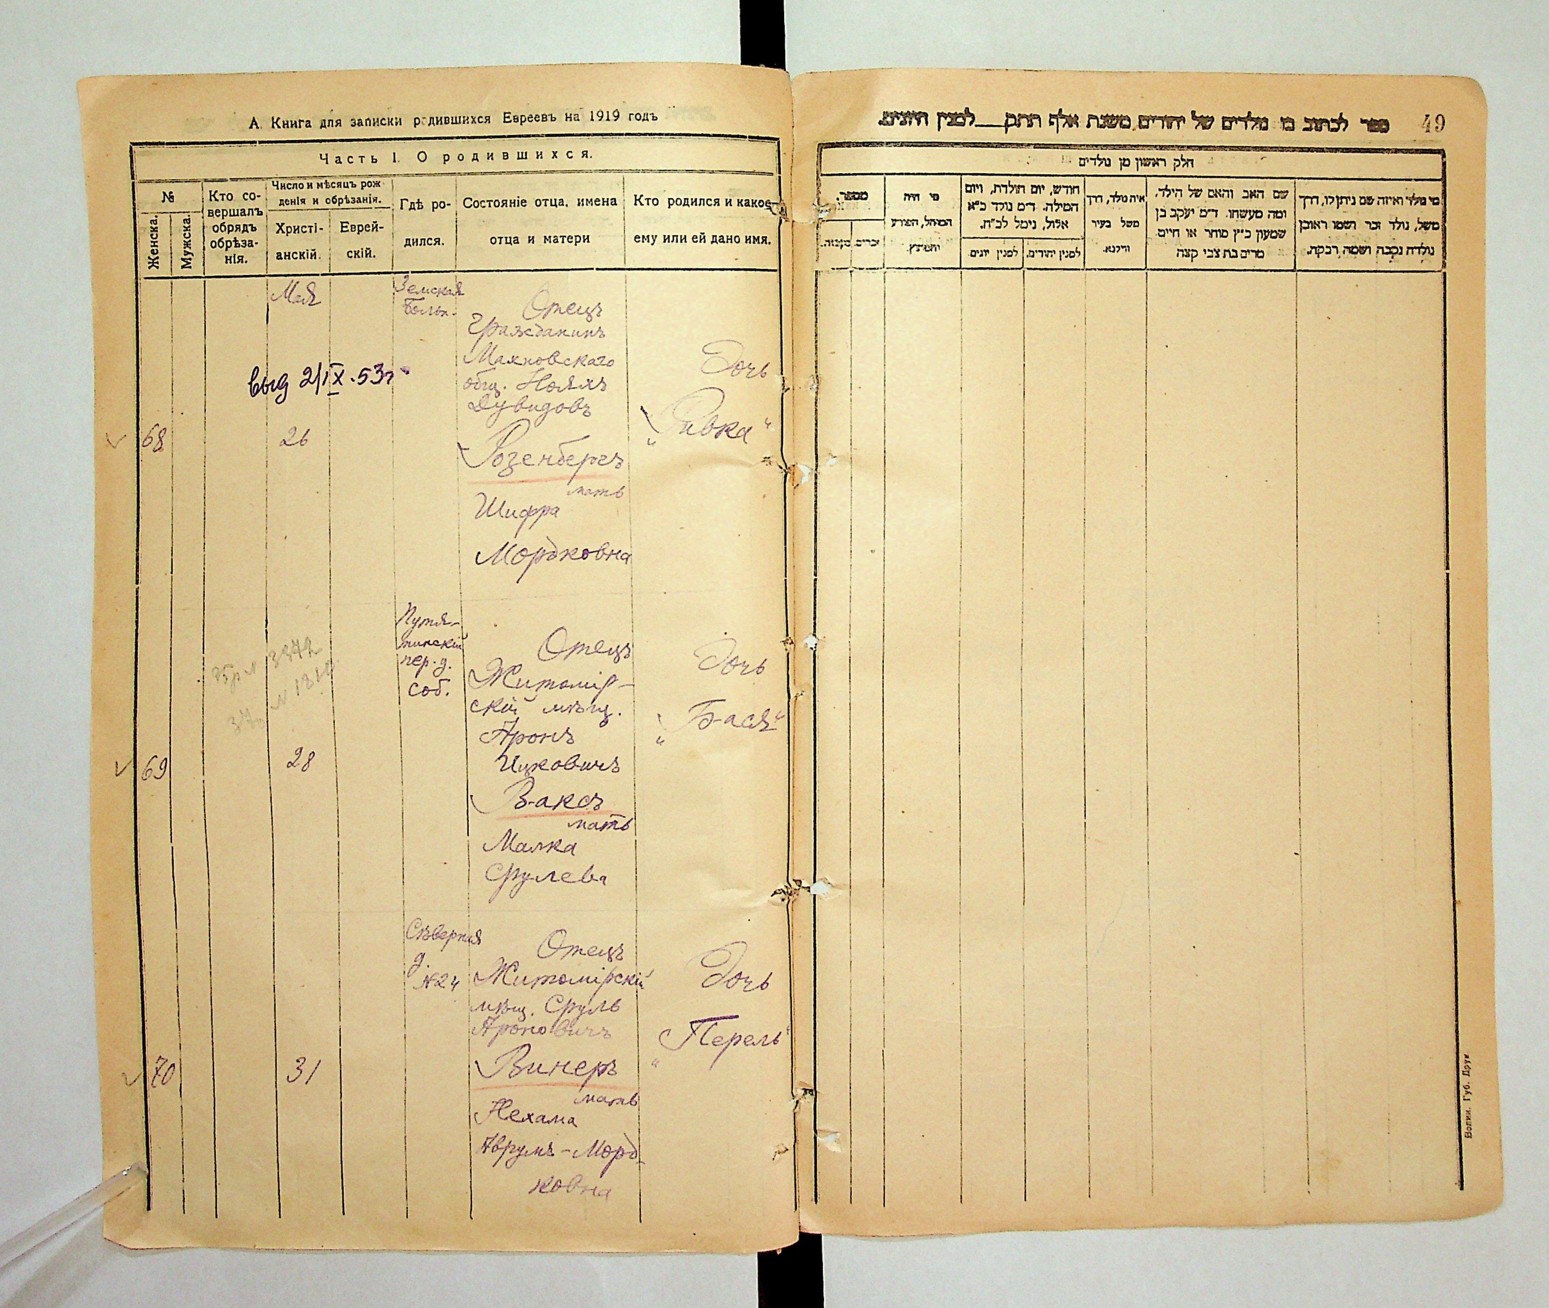 А. Книга для записки родившихся Евреевъ на 1919 годъ
Часть I. О родившихся.
№
Женска.
Мужска.
Кто со-
вершалъ
обрядъ
обрѣза-
нія.
Число и мѣсяцъ рож
денія и обрѣзанія.
Христі-
анскій.
Еврей-
скій.
Гдѣ ро-
дился.
Состояніе отца, имена
отца и матери
Кто родился и какое
ему или ей дано имя.
Мая
выд 2/IX.53г
68
26
Земская
больн.
Отецъ
Гражданинъ
Махновскаго
общ. Нояхъ
Дувидовъ
Розенбергъ
мать
Шифра
Мордковна
Дочь
„Ривка“
69
28
Путя-
тинскій
пер. д.
соб.
Отецъ
Житомір-
скій мѣщ.
Аронъ
Ицковичъ
Ваксъ
мать
Малка
Срулева
Дочь
„Бася“
70
31
Сѣверная
д.
№24
Отецъ
Житомірскій
мѣщ. Сруль
Ароновичъ
Винеръ
мать
Нехама
Аврумъ-Морд-
ковна
Дочь
„Перель“
ספר לכתוב בו נולדים של יהודים משנת אלף תתק__ למנין היונים.
49
חלק ראשון מן נולדים
מספר.
זכרים.
נקבות.
מי היה
המוהל, הפורע
והמוצץ.
חודש, יום תולדת, ויום
המילה. ד״מ נולד כ״א
אלול, נימל לכ״ח.
למנין יונים.
למנין יהודים.
איה נולד, דרך
משל בעיר
ווילנא.
שם האב והאם של הילד.
ומה מעשהו. ד״מ יעקב בן
שמעון כ״ץ סוחר או חיים
מרים בת צבי קצה
מי נולד ואיזה שם ניתן לו, דרך
משל, נולד זכר ושמו ראובן
נולדה נקבה ושמה רבקה.
Волин. Губ. Друк